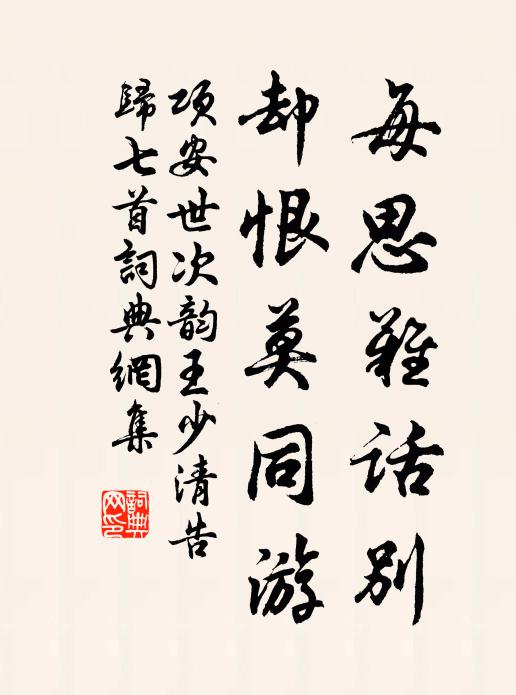 每思难话别
却恨莫同游
项安世次韵王少清告
歸七首詞典網集
詞典网印